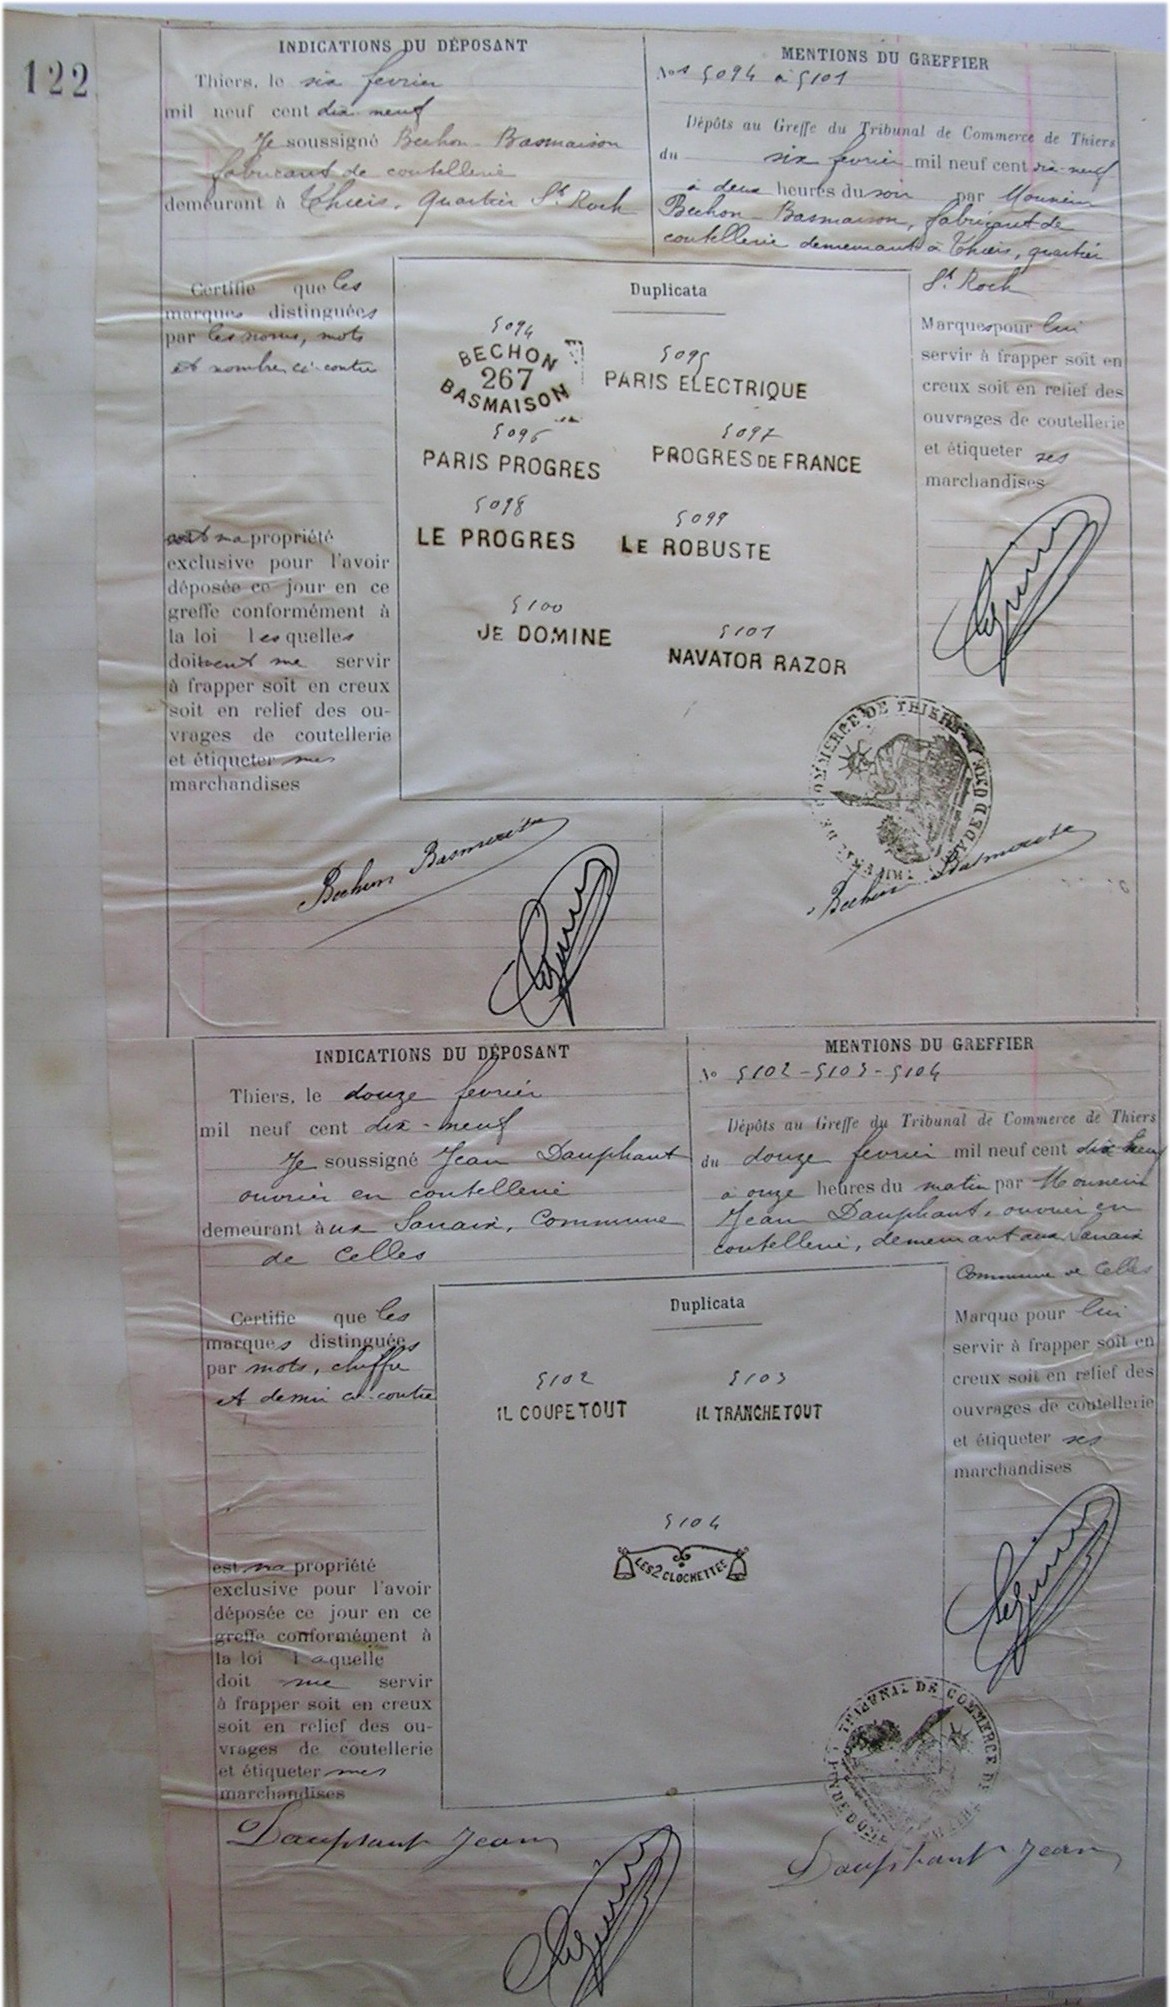 122
INDICATIONS DU DÉPOSANT
Thiers, le six fevrier
mil neuf cent dix-neuf
Je soussigné Bechon-Basmaison
fabricant de coutellerie
demeurant à Thiers, Quartier St Roch
MENTIONS DU GREFFIER
Nos 5094 à 5101
Dépôts au Greffe du Tribunal de Commerce de Thiers
du six fevrier mil neuf cent dix-neuf
à deux heures du soir par Monsieur
Bechon-Basmaison, fabricant de
coutellerie demeurant à Thiers, quartier
St Roch
Certifie que les
marques distinguées
par les noms, mots
et nombre ci-contre
sont ma propriété
exclusive pour l'avoir
déposée ce jour en ce
greffe conformément à
la loi lesquelles
doivent me servir
à frapper soit en creux
soit en relief des ou-
vrages de coutellerie
et étiqueter mes
marchandises
Duplicata
5094
BECHON
267
BASMAISON
5095
PARIS ELECTRIQUE
5096
PARIS PROGRES
5097
PROGRES DE FRANCE
5098
LE PROGRES
5099
LE ROBUSTE
5100
JE DOMINE
5101
NAVATOR RAZOR
Marques pour lui
servir à frapper soit en
creux soit en relief des
ouvrages de coutellerie
et étiqueter ses
marchandises
TRIBUNAL DE COMMERCE DE THIERS PUY DE DOME
Bechon Basmaison
Bechon Basmaison
INDICATIONS DU DÉPOSANT
Thiers, le douze fevrier
mil neuf cent dix-neuf
Je soussigné Jean Dauphant
ouvrier en coutellerie
demeurant aux Sanaix, Commune
de Celles
MENTIONS DU GREFFIER
No 5102-5103-5104
Dépôts au Greffe du Tribunal de Commerce de Thiers
du douze fevrier mil neuf cent dix neuf
à onze heures du matin par Monsieur
Jean Dauphant, ouvrier en
coutellerie, demeurant aux Sanaix
Commune de Celles
Certifie que les
marques distinguées
par mots, chiffre
et dessin ci-contre
est ma propriété
exclusive pour l'avoir
déposée ce jour en ce
greffe conformément à
la loi laquelle
doit me servir
à frapper soit en creux
soit en relief des ou-
vrages de coutellerie
et étiqueter mes
marchandises
Duplicata
5102
IL COUPE TOUT
5103
IL TRANCHE TOUT
5104
LES 2 CLOCHETTES
Marque pour lui
servir à frapper soit en
creux soit en relief des
ouvrages de coutellerie
et étiqueter ses
marchandises
TRIBUNAL DE COMMERCE DE THIERS PUY DE DOME
Dauphant Jean
Dauphant Jean